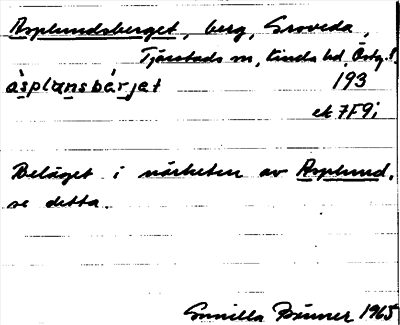 Asplundsberget, berg, Groveda,
Tjärstads sn, Kinda hd, Östg. l.
àsplansbárjat 193
ek 7F9i
Beläget i närheten av Asplund,
se detta.
Gunilla Brunner 1965